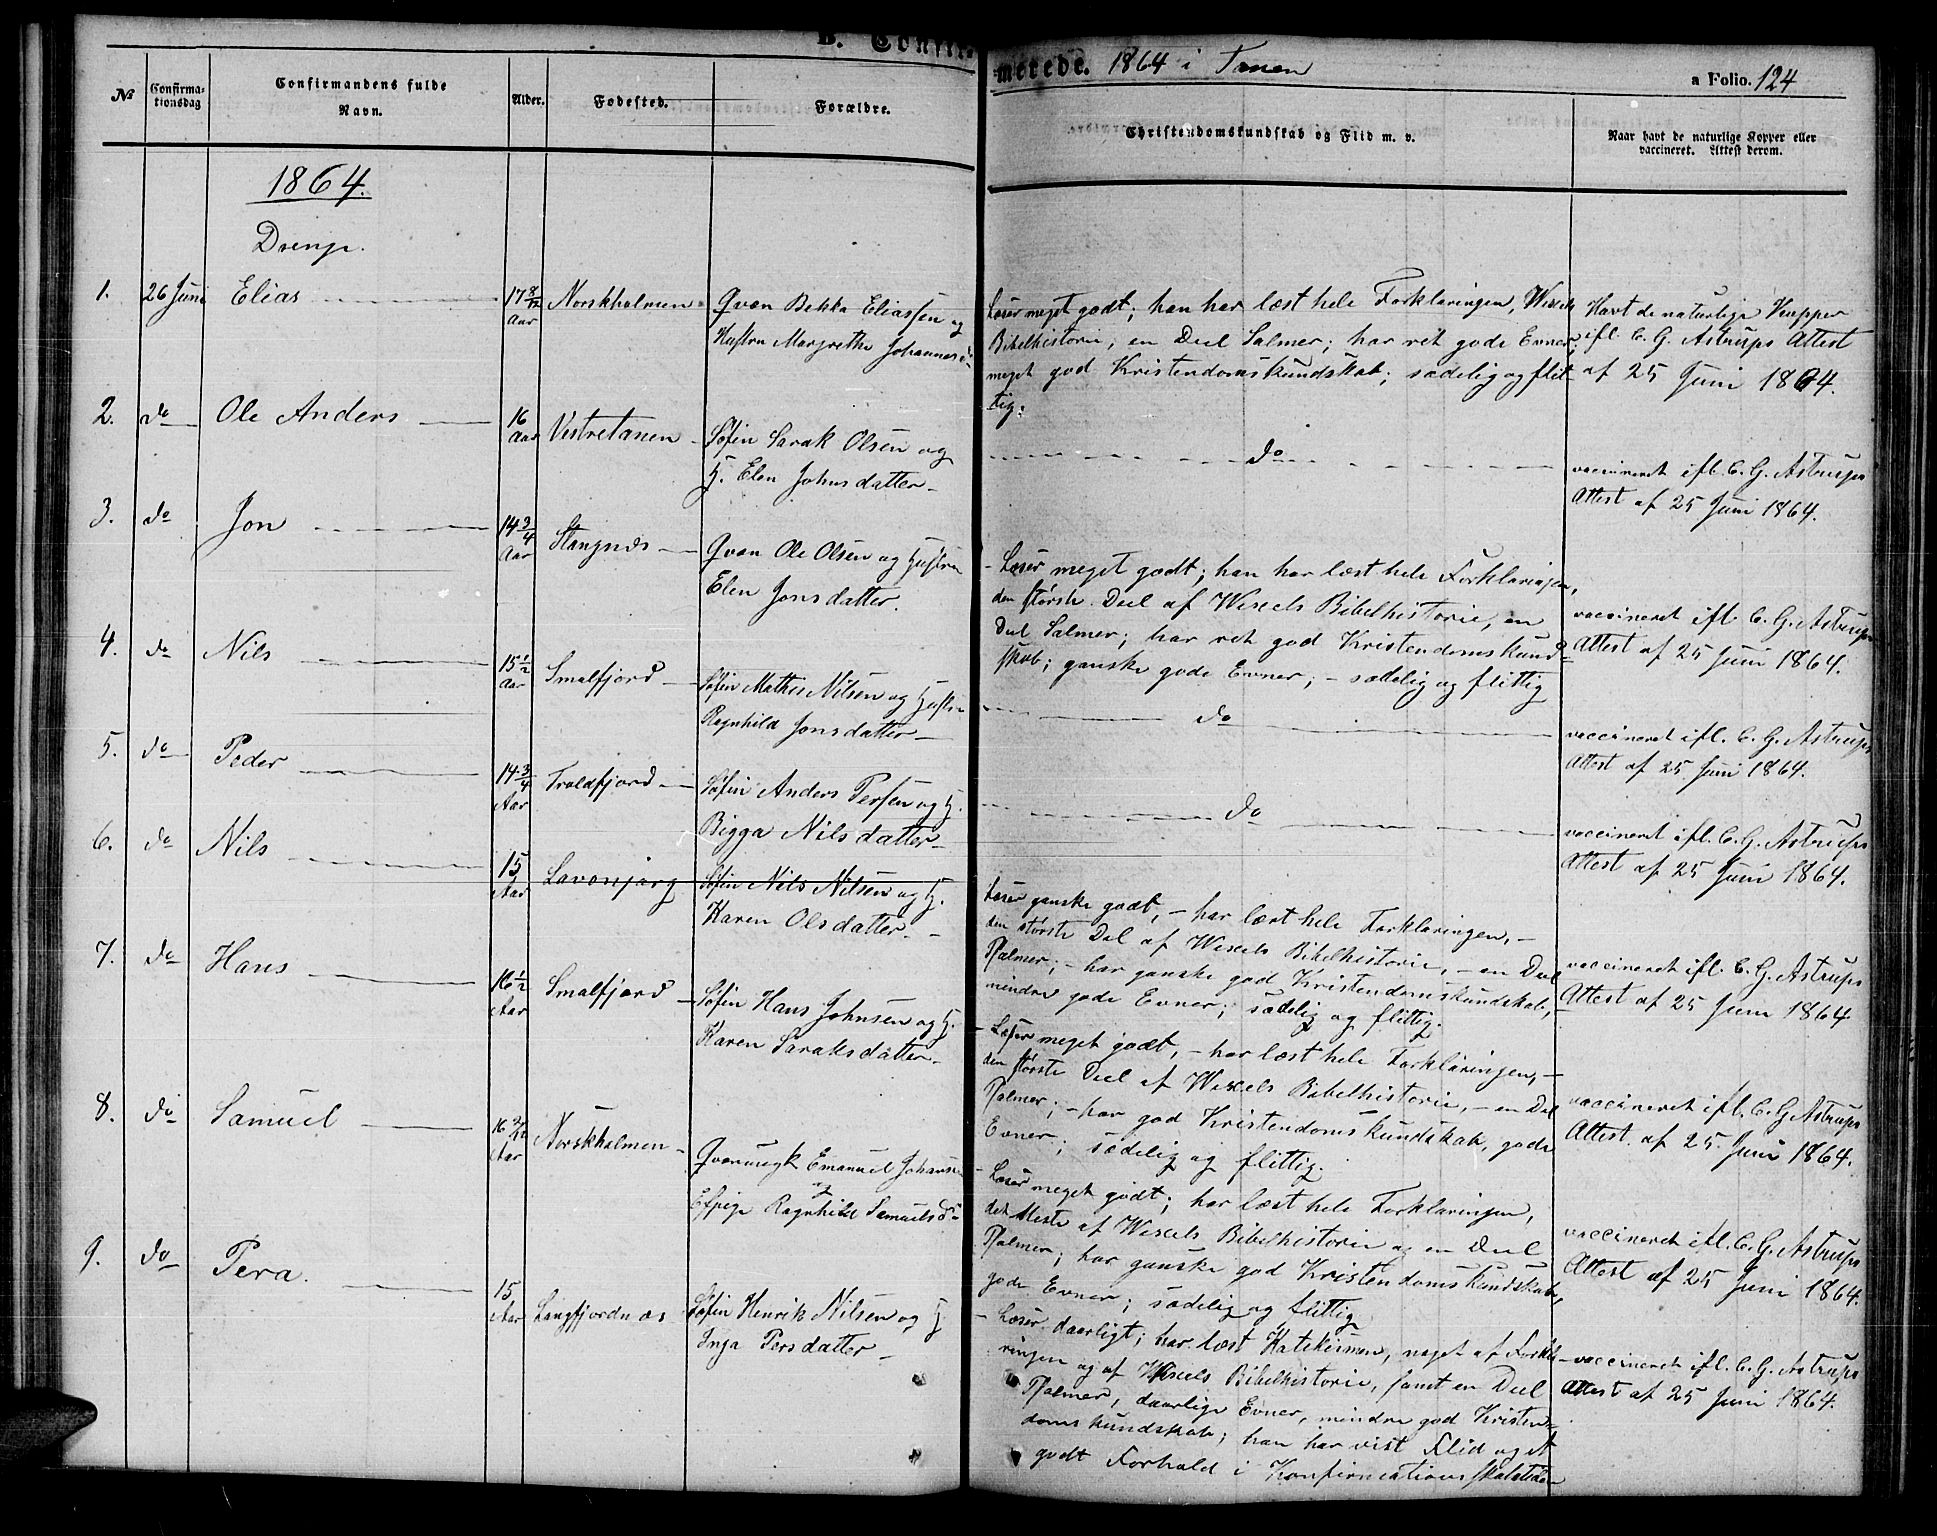 B. Confirmerede. 1864 i Tanen
a Folio. 124
No
Confirma-
tionsdag
Confirmandens fulde
Navn.
Alder.
Fodested.
Forældre.
Christendomskundskab og Flid m. v.
Naar havt de naturlige Kopper eller
vaccineret. Attest derom.
1864.
Drenge.
1. 26 Juni Elias 17 8/12 Aar Norskholmen
Qvæn Bekka Eliassen og
Hustru Margrethe Johannesd.
Læser meget godt; han har læst hele Forklaringen, Wexels
Bibelhistorie, en Deel Salmer; har ret gode Evner;
meget god Kristendomskundskab; sædelig og flit-
tig.
Havt de naturlige Kopper
ifl. C. G. Astrups Attest
af 25 Juni 1864.
2. do Ole Anders 16 Aar Vestretanen
Søfin Sarak Olsen og
H. Elen Johnsdatter
do
vaccineret ifl. C. G. Astrups
Attest af 25 Juni 1864.
3. do Jon 14 3/4 Aar Stangnæs
Qvæn Ole Olsen og Hustru
Elen Jonsdatter.
Læser meget godt; han har læst hele Forklaringen,
den største Deel af Wexels Bibelhistorie, en
Deel Salmer; har ret god Kristendomskund-
skab; ganske gode Evner; - sædelig og flittig
vaccineret ifl. C. G. Astrups
Attest af 25 Juni 1864.
4. do Nils 15 1/2 Aar Smalfjord
Søfin Mathis Nilsen og Hustru
Ragnhild Jonsdatter
do
vaccineret ifl. C. G. Astrups
Attest af 25 Juni 1864.
5. do Peder 14 3/4 Aar Troldfjord
Søfin Anders Persen og H.
Bigga Nilsdatter
do
vaccineret ifl. C. G. Astrups
Attest af 25 Juni 1864.
6. do Nils 15 Aar Lavonjarg
Søfin Nils Nilsen og H.
Karen Olsdatter
Læser ganske godt, - har læst hele Forklaringen, -
den største Deel af Wexels Bibelhistorie, - en Deel
Psalmer; - har ganske god Kristendomskundskab,
mindre gode Evner; sædelig og flittig.
vaccineret ifl. C. G. Astrups
Attest af 25 Juni 1864
7. do Hans 16 1/2 Aar Smalfjord
Søfin Hans Johnsen og H.
Karen Saraksdatter
Læser meget godt, - har læst hele Forklaringen, -
den største Deel af Wexels Bibelhistorie, - en Deel
Psalmer; - har god Kristendomskundskab, gode
Evner; sædelig og flittig.
vaccineret ifl. C. G. Astrups
Attest af 25. Juni 1864.
8. do Samuel Aar Norskholmen
Emanuel Johansen
og
Ragnhild Samuelsd.
Læser meget godt; har læst hele Forklaringen,
det Meste af Wexels Bibelhistorie og en Deel
Psalmer; har ganske god Kristendomskundskab,
gode Evner; sædelig og flittig
vaccineret ifl. C. G. Astrups
Attest af 25 Juni 1864.
9. do Pera. 15 Aar Langfjordnæs
Søfin Henrik Nilsen og H
Inga Persdatter
Læser daarligt; har læst Katekismen, noget af Forkla-
ringen og af Wexels Bibelhistorie, samt en Deel
Psalmer, daarlige Evner, mindre god Kristen-
domskundskab; han har vist Flid og et
godt Forhold i Konfirmations
vaccineret ifl. C. G. Astrups
Attest af 25 Juni 1864.